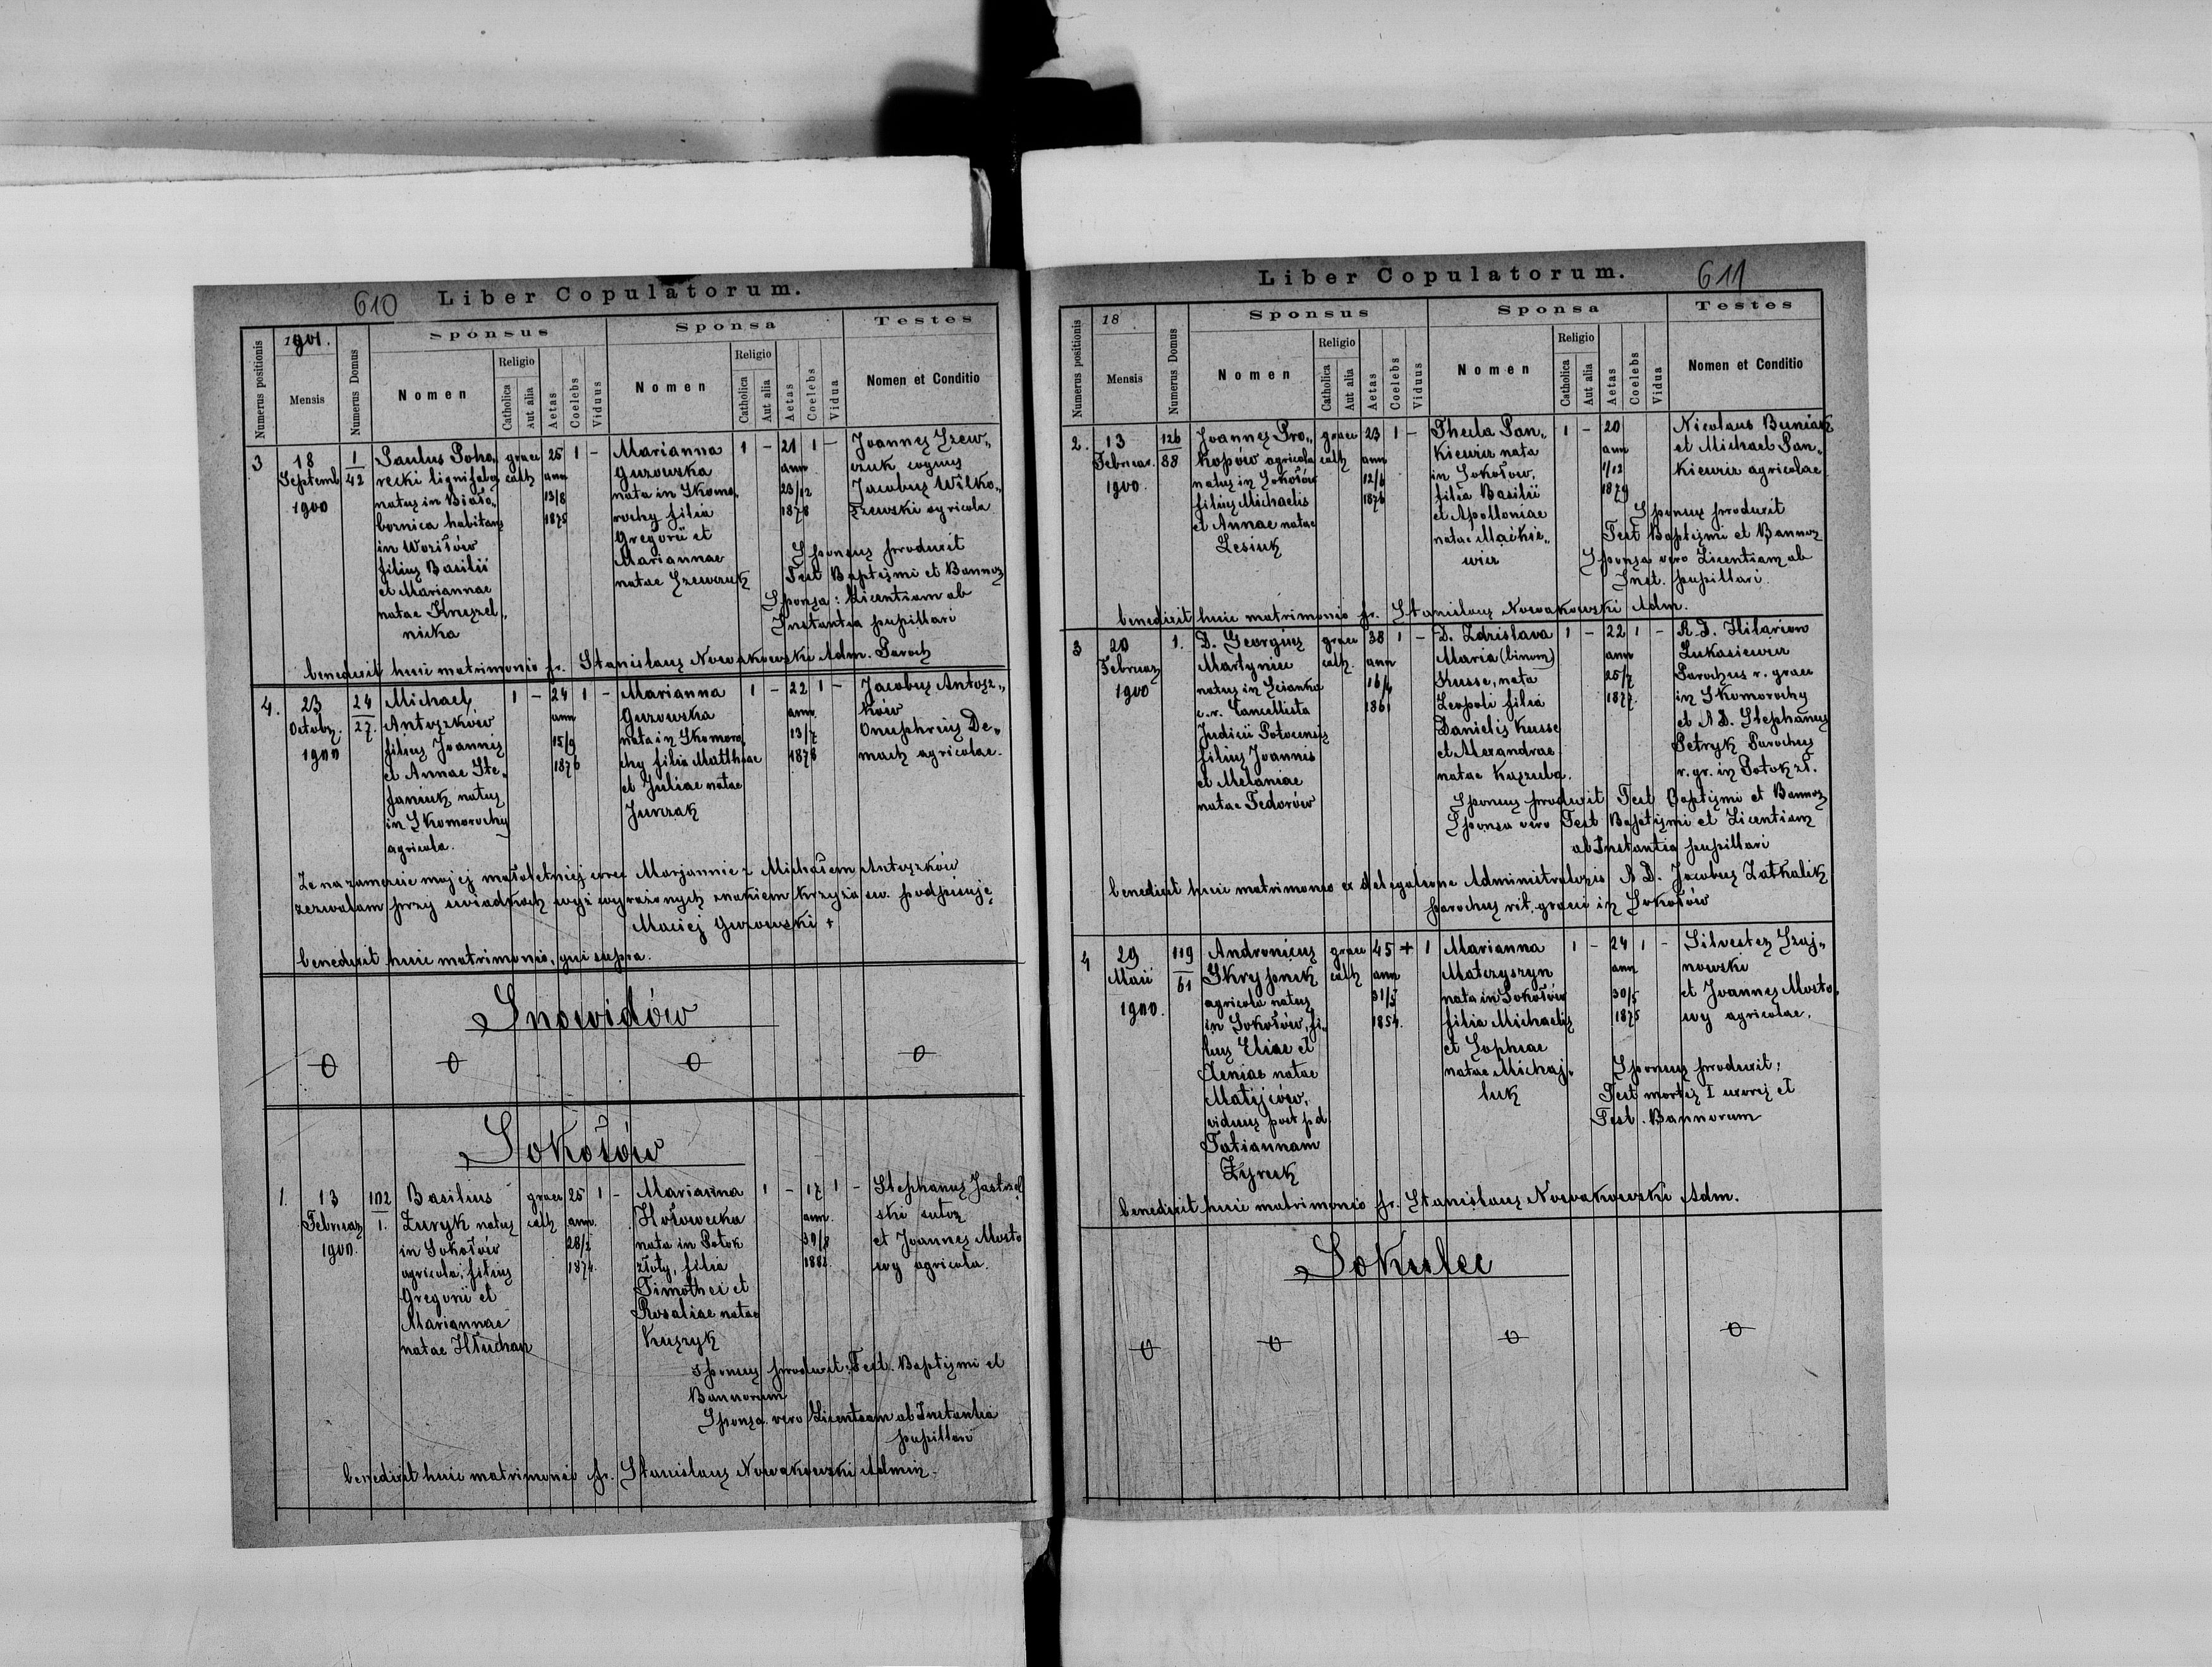 610 Liber Copulatorum.
Numerus positionis
1901.
Mensis
Numerus Domus
Sponsus
Nomen
Religio
Catholica
Aut alia
Aetas
Coelebs
Viduus
Sponsa
Nomen
Religio
Catholica
Aut alia
Aetas
Coelebs
Vidua
Testes
Nomen et Conditio
3
18
Septemb
1900
1
42
Paulus Poho„
recki lignifaber
natus in Biało„
boznica habitans
in Woziłów
filius Basilii
et Mariannae
natae Kruszel„
nicka
graec
cath
25
ann
13/8
1875
1 –
Marianna
Guzowska
nata in Skomo„
rochy filia
Gregorii et
Mariannae
natae Szewczuk
1 –
21
ann
23/12
1878
1 –
Joannes Szew„
czuk
Jacobus Wilko„
szewski agricola
Sponsus produxit
Test Baptismi et Bannor
Sponsa: Licentiam ab
Instantia pupillari
benedixit huic matrimonio fr. Stanislaus Nowakowski Adm. Paroch
4.
23
Octobr.
1900
24
27.
Michael
Antoszków
filius Joannis
et Annae Ste„
faniuk natus
in Skomorochy
agricola.
1 –
24
ann
15/9
1876
1 –
Marianna
Guzowska
nata in Skomoro
chy filia Matthaae
et Juliae natae
Jurzak
1 –
22
ann.
13/7
1878
1 –
Jacobus Antosz„
ków
Onuphrius De„
mach agricolae.
Ze na zamęzcie mojej małoletniej córci Marjannie z Michałem Antoszków
zezwalam przy świadkach wyż wyrażonych znakiem krzyża św. podpisuję
Maciej Guzowski +
benedixit huic matrimonio, qui supra.
Snowidów
0 0 0 0
Sokołów
1.
13
Februar
1900.
102
1.
Basilius
Zuryk natus
in Sokołów
agricola; filius
Gregorii et
Mariannae
natae Hłuchan
graec
cath
25
ann.
28/2
1874.
1 –
Marianna
Hołowecka
nata in Potok
złoty, filia
Timothei et
Rosaliae natae
Kuszyk
1 –
17
ann.
30/8
1882.
1 –
Stephanus Jastrzęb
ski sutor
et Joannes Mosto
wy agricola.
Sponsus produxit: Test. Baptismi et
Bannorum
Sponsa vero Licentiam ab Instantia
pupillari
benedixit huic matrimonio fr. Stanislaus Nowakowski Admin.
Liber Copulatorum. 611
Numerus positionis
18
Mensis
Numerus Domus
Sponsus
Nomen
Religio
Catholica
Aut alia
Aetas
Coelebs
Viduus
Sponsa
Nomen
Religio
Catholica
Aut alia
Aetas
Coelebs
Vidua
Testes
Nomen et Conditio
2.
13
Februar.
1900.
126
88
Joannes Pro„
kopów agricola
natus in Sokołów
filius Michaelis
et Annae natae
Lesiuk
graec
cath
23
ann
12/6
1876
1 –
Thecla Pan„
kiewicz nata
in Sokołow,
filia Basilii
et Apolloniae
natae Mackie„
wicz
1 –
20
ann
1/12
1879
Nicolaus Buniak
et Michael Pan„
kiewicz agricolae
Sponsus produxit
Test Baptismi et Bannor
Sponsa vero Licentiam ab
Inst. pupillari.
benedixit huic matrimonio fr. Stanislaus Nowakowski Adm.
3
20
Februar
1900
1.
D. Georgius
Martyniec
natus in Ścianka
c. r. Cancellista
Judicii Potocensis
filius Joannis
et Melaniae
natae Fedorów
graec
cath.
38
ann
16/4
1861
1 –
D. Zdzislava
Maria (binom)
Kusse, nata
Leopoli filia
Danielis Kusse
et Alexandrae
natae Kaszuba.
1 –
22
ann
25/7
1877.
1 –
R. D. Hilarion
Lukasiewicz
Parochus r. graec
in Skomorochy
et R D. Stephanus
Petryk Parochus
r. gr. in Potok zł.
Sponsus produxit Test Baptismi et Bannor
Sponsa vero Test Baptismi et Licentiam
ab Instantia pupillari
benedixit huic matrimonio ex delegatione Administratoris R D. Jacobus Zatkalik
parochus rit. graeci in Sokołów
4
29
Maii
1900.
119
61
Andronicus
Skrypnik
agricola natus
in Sokołów, fi„
lius Eliae et
Xeniae natae
Matijców,
viduus post pd.
Tatiannam
Żyrek
graec
cath
45
ann
31/5
1854.
+ 1
Marianna
Matczyszyn
nata in Sokołów
filia Michaelis
et Sophiae
natae Michaj„
luk
1 –
24
ann
30/5
1875
1 –
Silvester Szaj„
nowski
et Joannes Mosto„
wy agricolae.
Sponsus produxit:
Test mortis I uxoris et
Test. Bannorum
benedixit huic matrimonio fr. Stanislaus Nowakowski Adm.
Sokulec
0 0 0 0